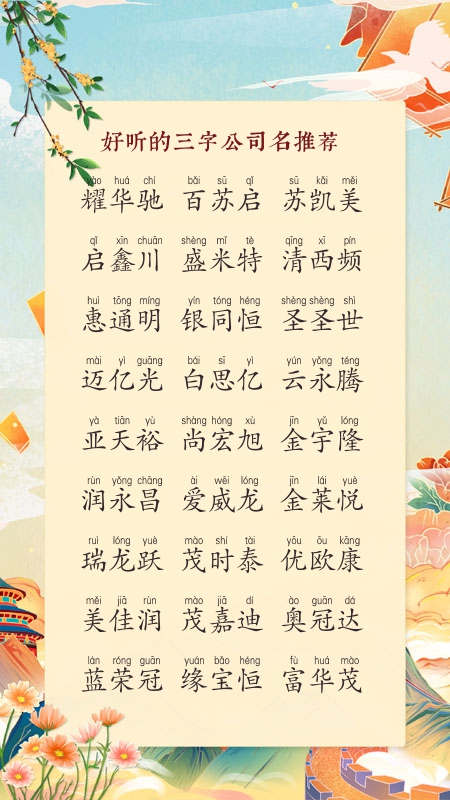 好听的三字公司名推荐
yào huá chí bǎi sū qǐ sū kǎi měi
耀华驰 百苏启 苏凯美
qǐ xīn chuān shèng mǐ tè qīng xī pín
启鑫川 盛米特 清西频
huì tōng míng yín tóng héng shèng shèng shì
惠通明 银同恒 圣圣世
mài yì guāng bái sī yì yún yǒng téng
迈亿光 白思亿 云永腾
yà tiān yù shàng hóng xù jīn yǔ lóng
亚天裕 尚宏旭 金宇隆
rùn yǒng chāng ài wēi lóng jīn lái yuè
润永昌 爱威龙 金莱悦
ruì lóng yuè mào shí tài yōu ōu kāng
瑞龙跃 茂时泰 优欧康
měi jiā rùn mào jiā dí ào guān dá
美佳润 茂嘉迪 奥冠达
lán róng guān yuán bǎo héng fù huá mào
蓝荣冠 缘宝恒 富华茂